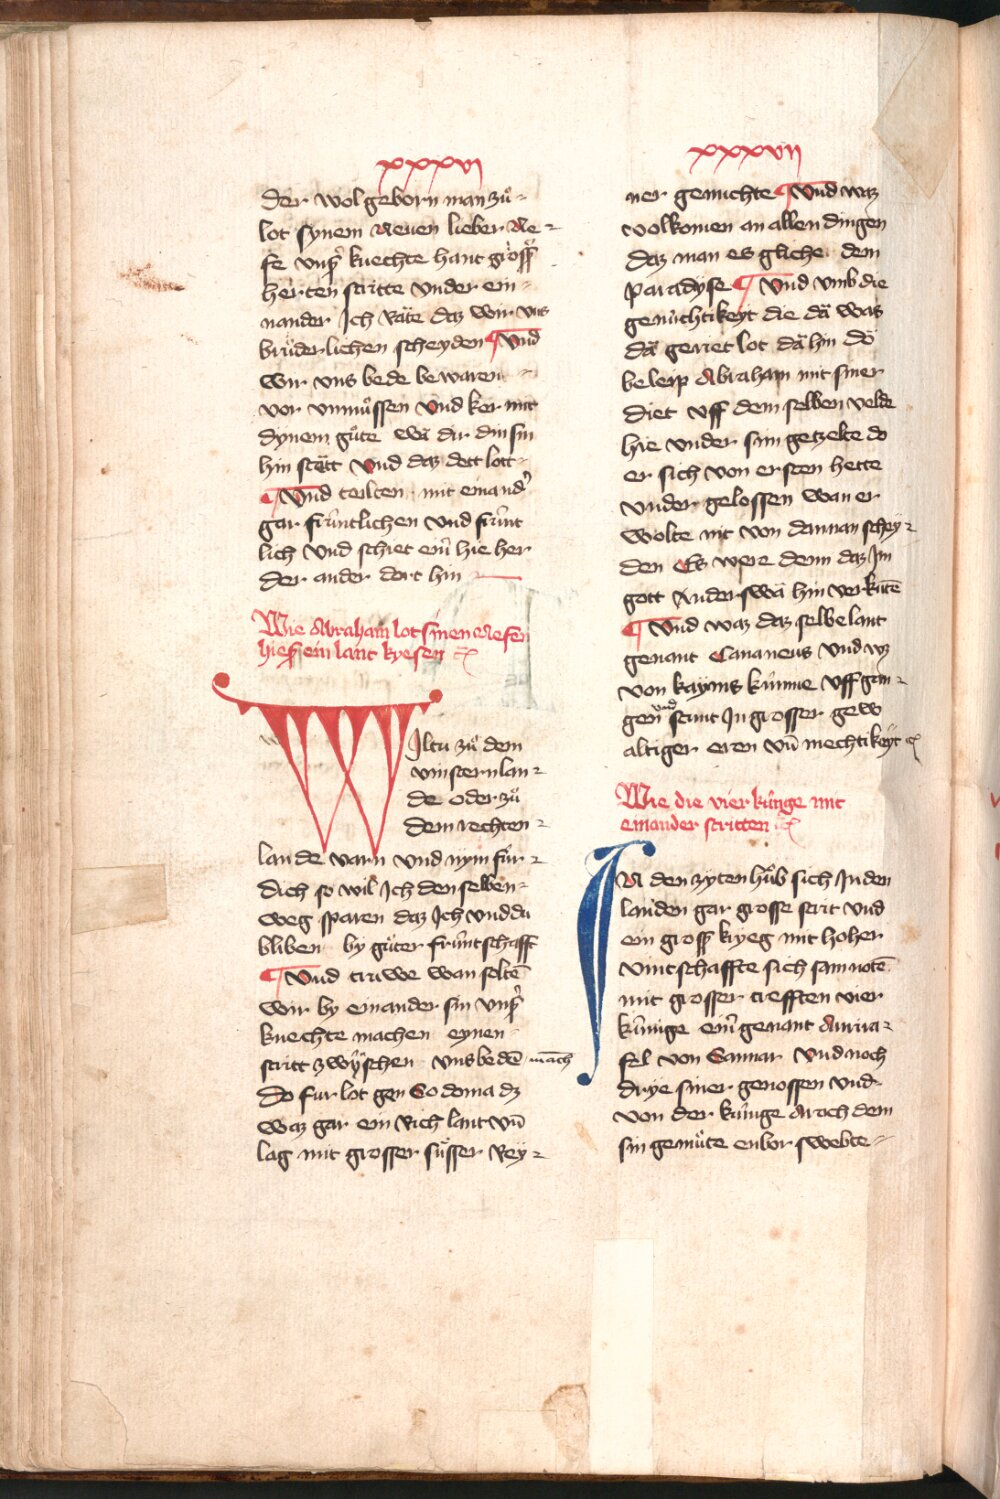 xxxvi
der wol geborn man zuͦ
lot synem Neuen lieber Ne⸗
fe vnsʼ knechte hant groͤsß
herten stritte vnder ein⸗
nander Ich Râte daz wir vns
bruͤderlichen scheyden ¶ Vnd
wir vns bede bewaren
vor vnmuͤssen Vnd ker mit
dynem guͤte wâ dir din sin
hin stett Vnd daz dett lott
¶ Vnd teilten mit einandʼ
gar fruͤntlichen Vnd fruͤnt
lich Vnd schiet ein hie her
der ander dort hin
Wie Abraham lot sinen Nefen
hieß ein lant kyesen
WIltu zuͦ dem
vinstern lan⸗
de oder zuͦ
dem rechten⸗
lande varn vnd nym fuͤr⸗
dich so wil Ich den selben⸗
weg sparen daz Ich vnd du
bliben by guͤter fruͤntschafft
¶ Vnd truwe wan soltē
wir by einander sin vnsʼ
knechte machen eynen
stritt zwyschen vns bedē mach
Do fur lot gen Sodoma dz
waz gar ein Rich lant vn̄
lag mit grosser suͤsser Rey⸗
xxxvii
ner genuchte ¶ Vnd waz
volkomen an allen dingen
daz man es gliche dem
paradyse ¶ Vnd vmb die
genuchtikeyt die dâ was
dâ geriet lot dâ hin Do
beleip Abraham mit siner
diet vff dem selben velde
hie vnder sim getzelte do
er sich von ersten hette
vnder gelossen wan er
wolte nit von dannan schey⸗
den Es were denn daz Im
gott Anderswâ hin verkūte
¶ Vnd waz daz selbe lant
genant Cananeus Vnd wz
von kayms kunne vff gan⸗
gen vnd stunt In grosser gew
altiger eren vn̄ mechtikeyt
Wie die vier kuͤnge mit
einander stritten
IN den zyten huͦb sich In den
landen gar grosse strit vnd
ein groß kryeg mit hoher
vintschaffte sich samnotē
mit grosser trefften vier
kuͤnige ein genant Amra⸗
fel von Sannar Vnd noch
drye siner genossen vnd
von der kuͤnige Arioch dem
sin gemuͤte enbor swebte